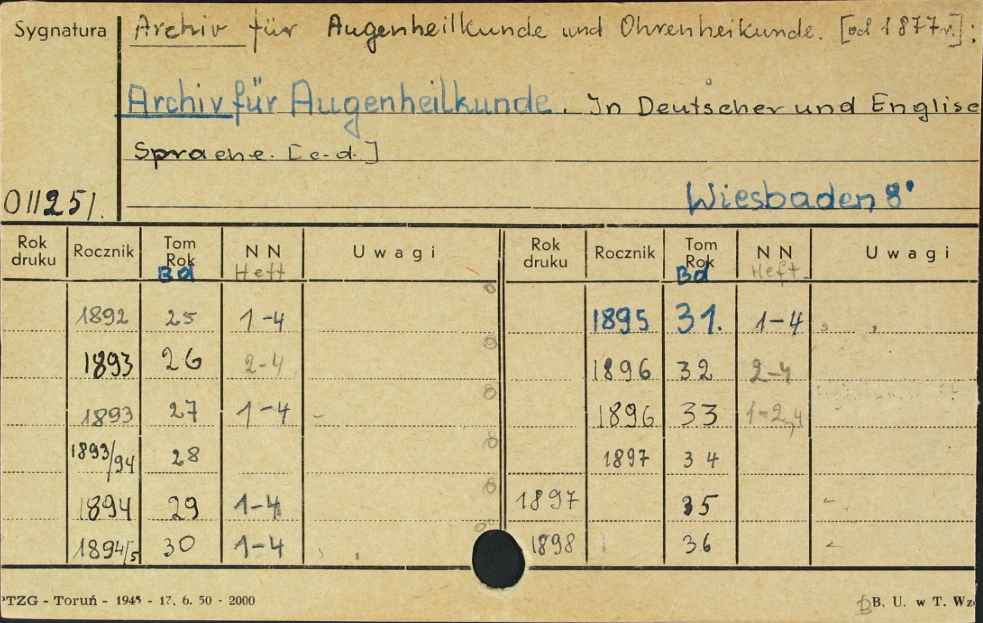 Sygnatura Archiv für Augenheilkunde und Ohrenheikunde. [od 1877r.]:
Archiv für Augenheilkunde. In Deutscher und Englise
Sprache. [c.d.]
011251. Wiesbaden 8°
Rok druku Rocznik Tom Rok Bd NN Heft Uwagi Rok druku Rocznik Tom Rok Bd NN Heft Uwagi
1892 25 1-4 1895 31. 1-4
1893 26 2-4 1896 32 2-4
1893 27 1-4 - 1896 33 1-2,4
1893/94 28 1897 34
1894 29 1-4 1897 35 -
1894/5 30 1-4 1898 36 -
PTZG - Toruń - 1945 - 17. 6. 50 - 2000 B. U. w T. Wz